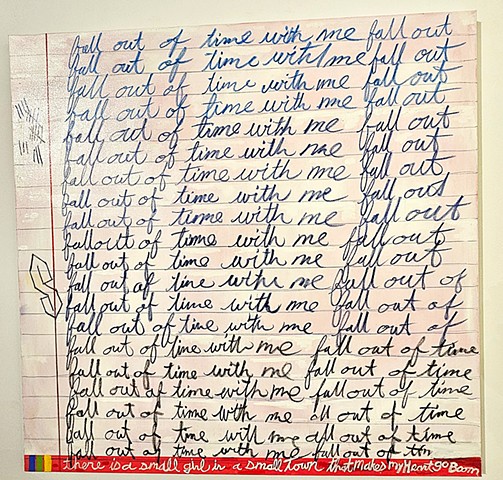 fall out of time with me fall out
fall out of time with me fall out
fall out of time with me fall out
fall out of time with me fall out
fall out of time with me fall out
fall out of time with me fall out
fall out of time with me fall out
fall out of time with me fall out
fall out of time with me fall out
fall out of time with me fall out
fall out of time with me fall out
fall out of time with me fall out of
fall out of time with me fall out of
fall out of time with me fall out of
fall out of time with me fall out of time
fall out of time with me fall out of time
fall out of time with me fall out of time
fall out of time with me all out of time
fall out of time with me all out of time
fall out of time with me fall out of tim
there is a small girl in a small town that makes my Heart go Bam